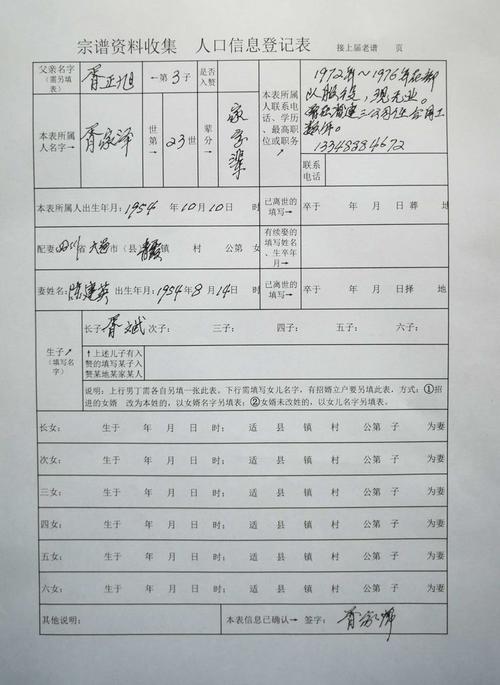 宗谱资料收集 人口信息登记表 接上届老谱 页
父亲名字(需另填表) 胥正旭 一第3子 是否入赘
本表所属人名字→ 胥家泽 世第→ 23世 辈分→ 家字辈
本表所属人联系电话、学历、最高职位或职务
1972年～1976年在部
现无业。
13348884672
联系电话
本表所属人出生年月: 1954 年10月10日 时 已离世的填写→ 卒于 年 月 日葬 地
配妻 四川省 大邑市(县) 镇 村 公第 女 有续娶的填写姓名、生卒年月→
妻姓名: 陈建英 出生年月: 1954年8月14日 时 已离世的填写→ 卒于 年 月 日择 地
生子↗(填写名字) 长子 胥斌 次子: 三子: 四子: 五子: 六子:
↑上述儿子有入赘的填写某子入赘某地某家某人
说明:上行男丁需各自另填一张此表。下行需填写女儿名字,有招婿立户要另填此表,方式:①招进的女婿 改为本姓的,以女婿名字另填表;②女婿未改姓的,以女儿名字另填表。
长女: 生于 年 月 日 时; 适 县 镇 村 公第 子 为妻
次女: 生于 年 月 日 时; 适 县 镇 村 公第 子 为妻
三女: 生于 年 月 日 时; 适 县 镇 村 公第 子 为妻
四女: 生于 年 月 日 时; 适 县 镇 村 公第 子 为妻
五女: 生于 年 月 日 时; 适 县 镇 村 公第 子 为妻
六女: 生于 年 月 日 时; 适 县 镇 村 公第 子 为妻
其他说明: 本表信息已确认→ 签字: